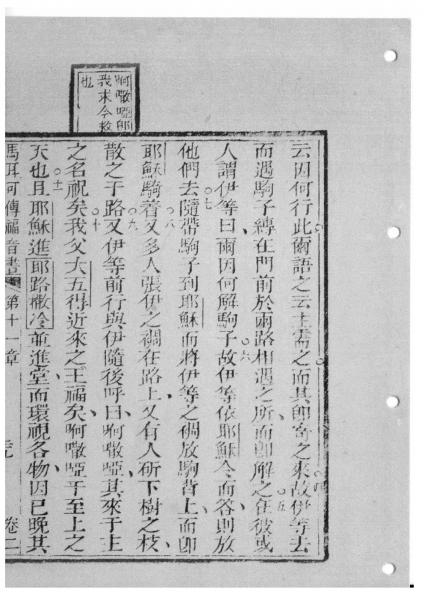 云因何行此爾語之云主需之而其即寄之來故伊等去
而遇駒子縛在門前於兩路相遇之所而即解之在彼或
人謂伊等曰爾因何解駒子故伊等依耶穌令而答則放
他們去隨帶駒子到耶穌而將伊等之裯放駒背上而即
耶穌騎着又多人張伊之裯在路上又有人斫下樹之枝
散之于路又伊等前行與伊隨後呼曰啊㗳啞其來于主
之名祝矣我父大五得近來之王福矣啊㗳啞乎至上之
天也且耶穌進耶路撒冷並進堂而環視各物因已晚其
馬耳可傳福音書 第十一章 卷二
啊㗳啞即
我求今救
也
四
五
六
七
八
九
十
十一